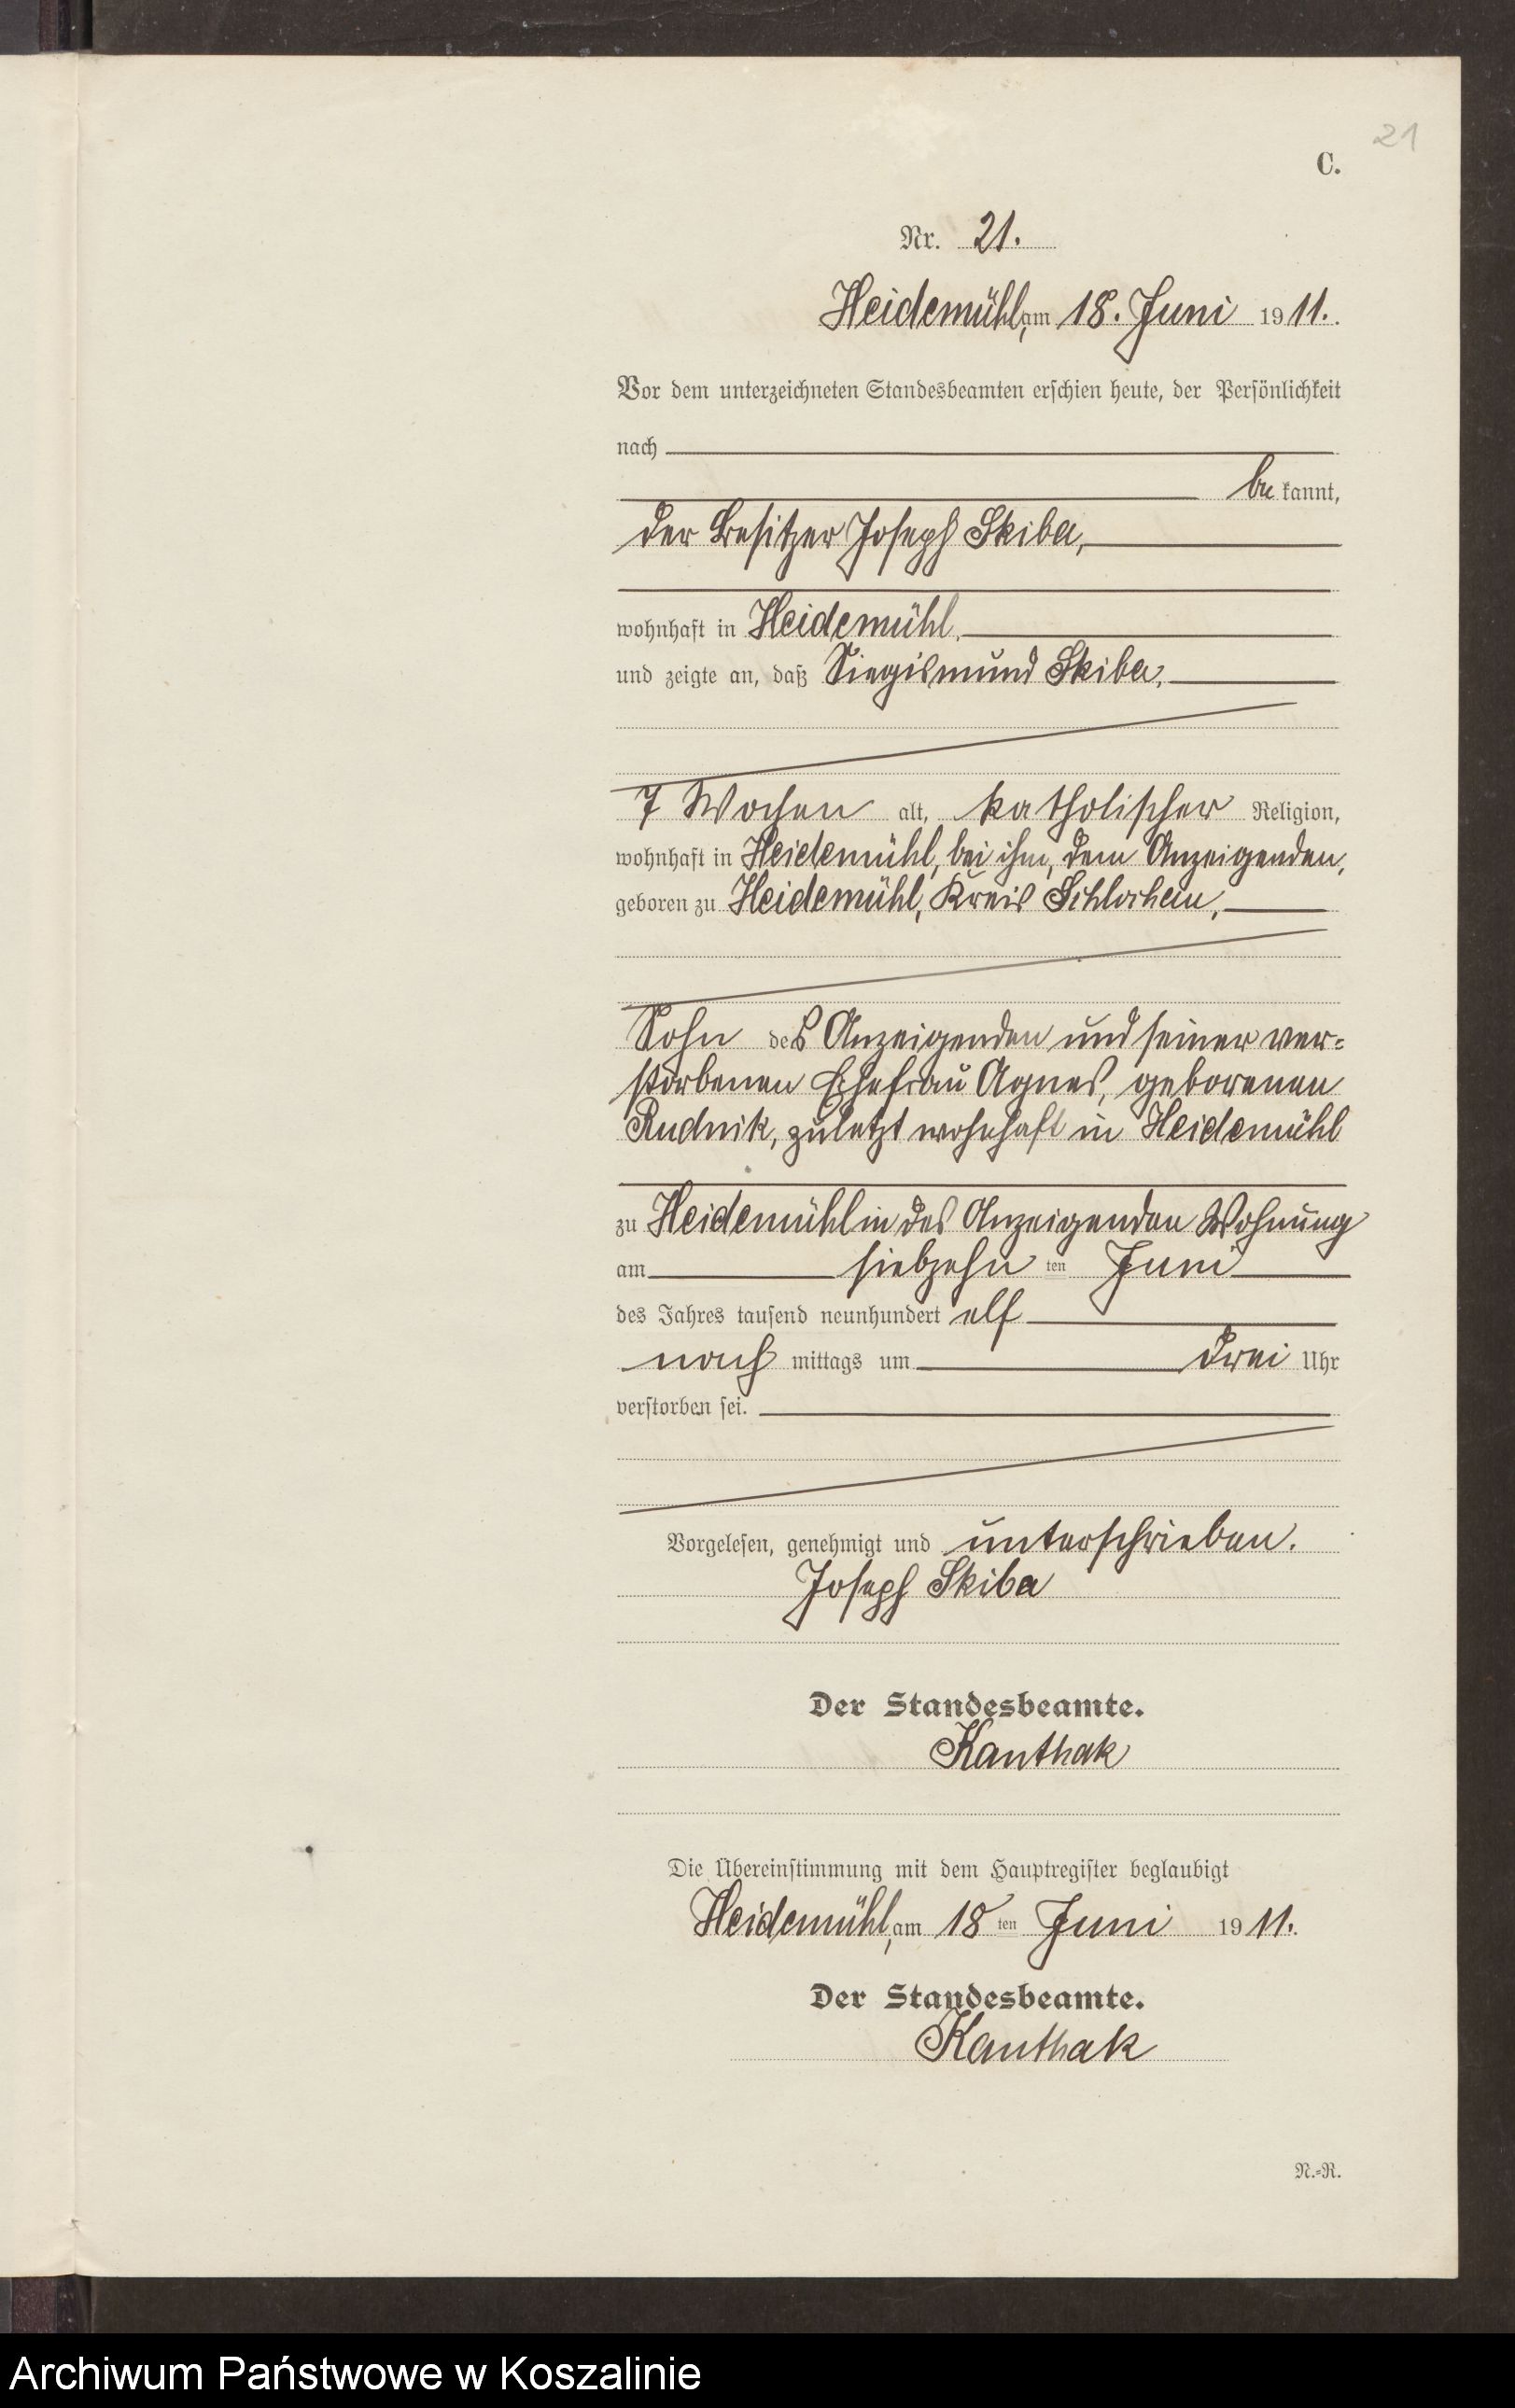 21
C.
Nr. 21.
Heidemühl, am 18. Juni 1911.
Vor dem unterzeichneten Standesbeamten erschien heute, der Persönlichkeit
nach
be kannt,
der Besitzer Joseph Skiba,
wohnhaft in Heidemühl,
und zeigte an, daß Siegismund Skiba,
7 Wochen alt, katholischer Religion,
wohnhaft in Heidemühl, bei ihm, dem Anzeigenden,
geboren zu Heidemühl, Kreis Schlochau,
Sohn des Anzeigenden und seiner ver=
storbenen Ehefrau Agnes, geborenen
Rudnik, zuletzt wohnhaft in Heidemühl
zu Heidemühl in des Anzeigenden Wohnung
am siebzehn ten Juni
des Jahres tausend neunhundert elf
nach mittags um drei Uhr
verstorben sei.
Vorgelesen, genehmigt und unterschrieben.
Joseph Skiba
Der Standesbeamte.
Kanthak
Die Übereinstimmung mit dem Hauptregister beglaubigt
Heidemühl, am 18 ten Juni 1911.
Der Standesbeamte.
Kanthak
N.=R.
Archiwum Państwowe w Koszalinie